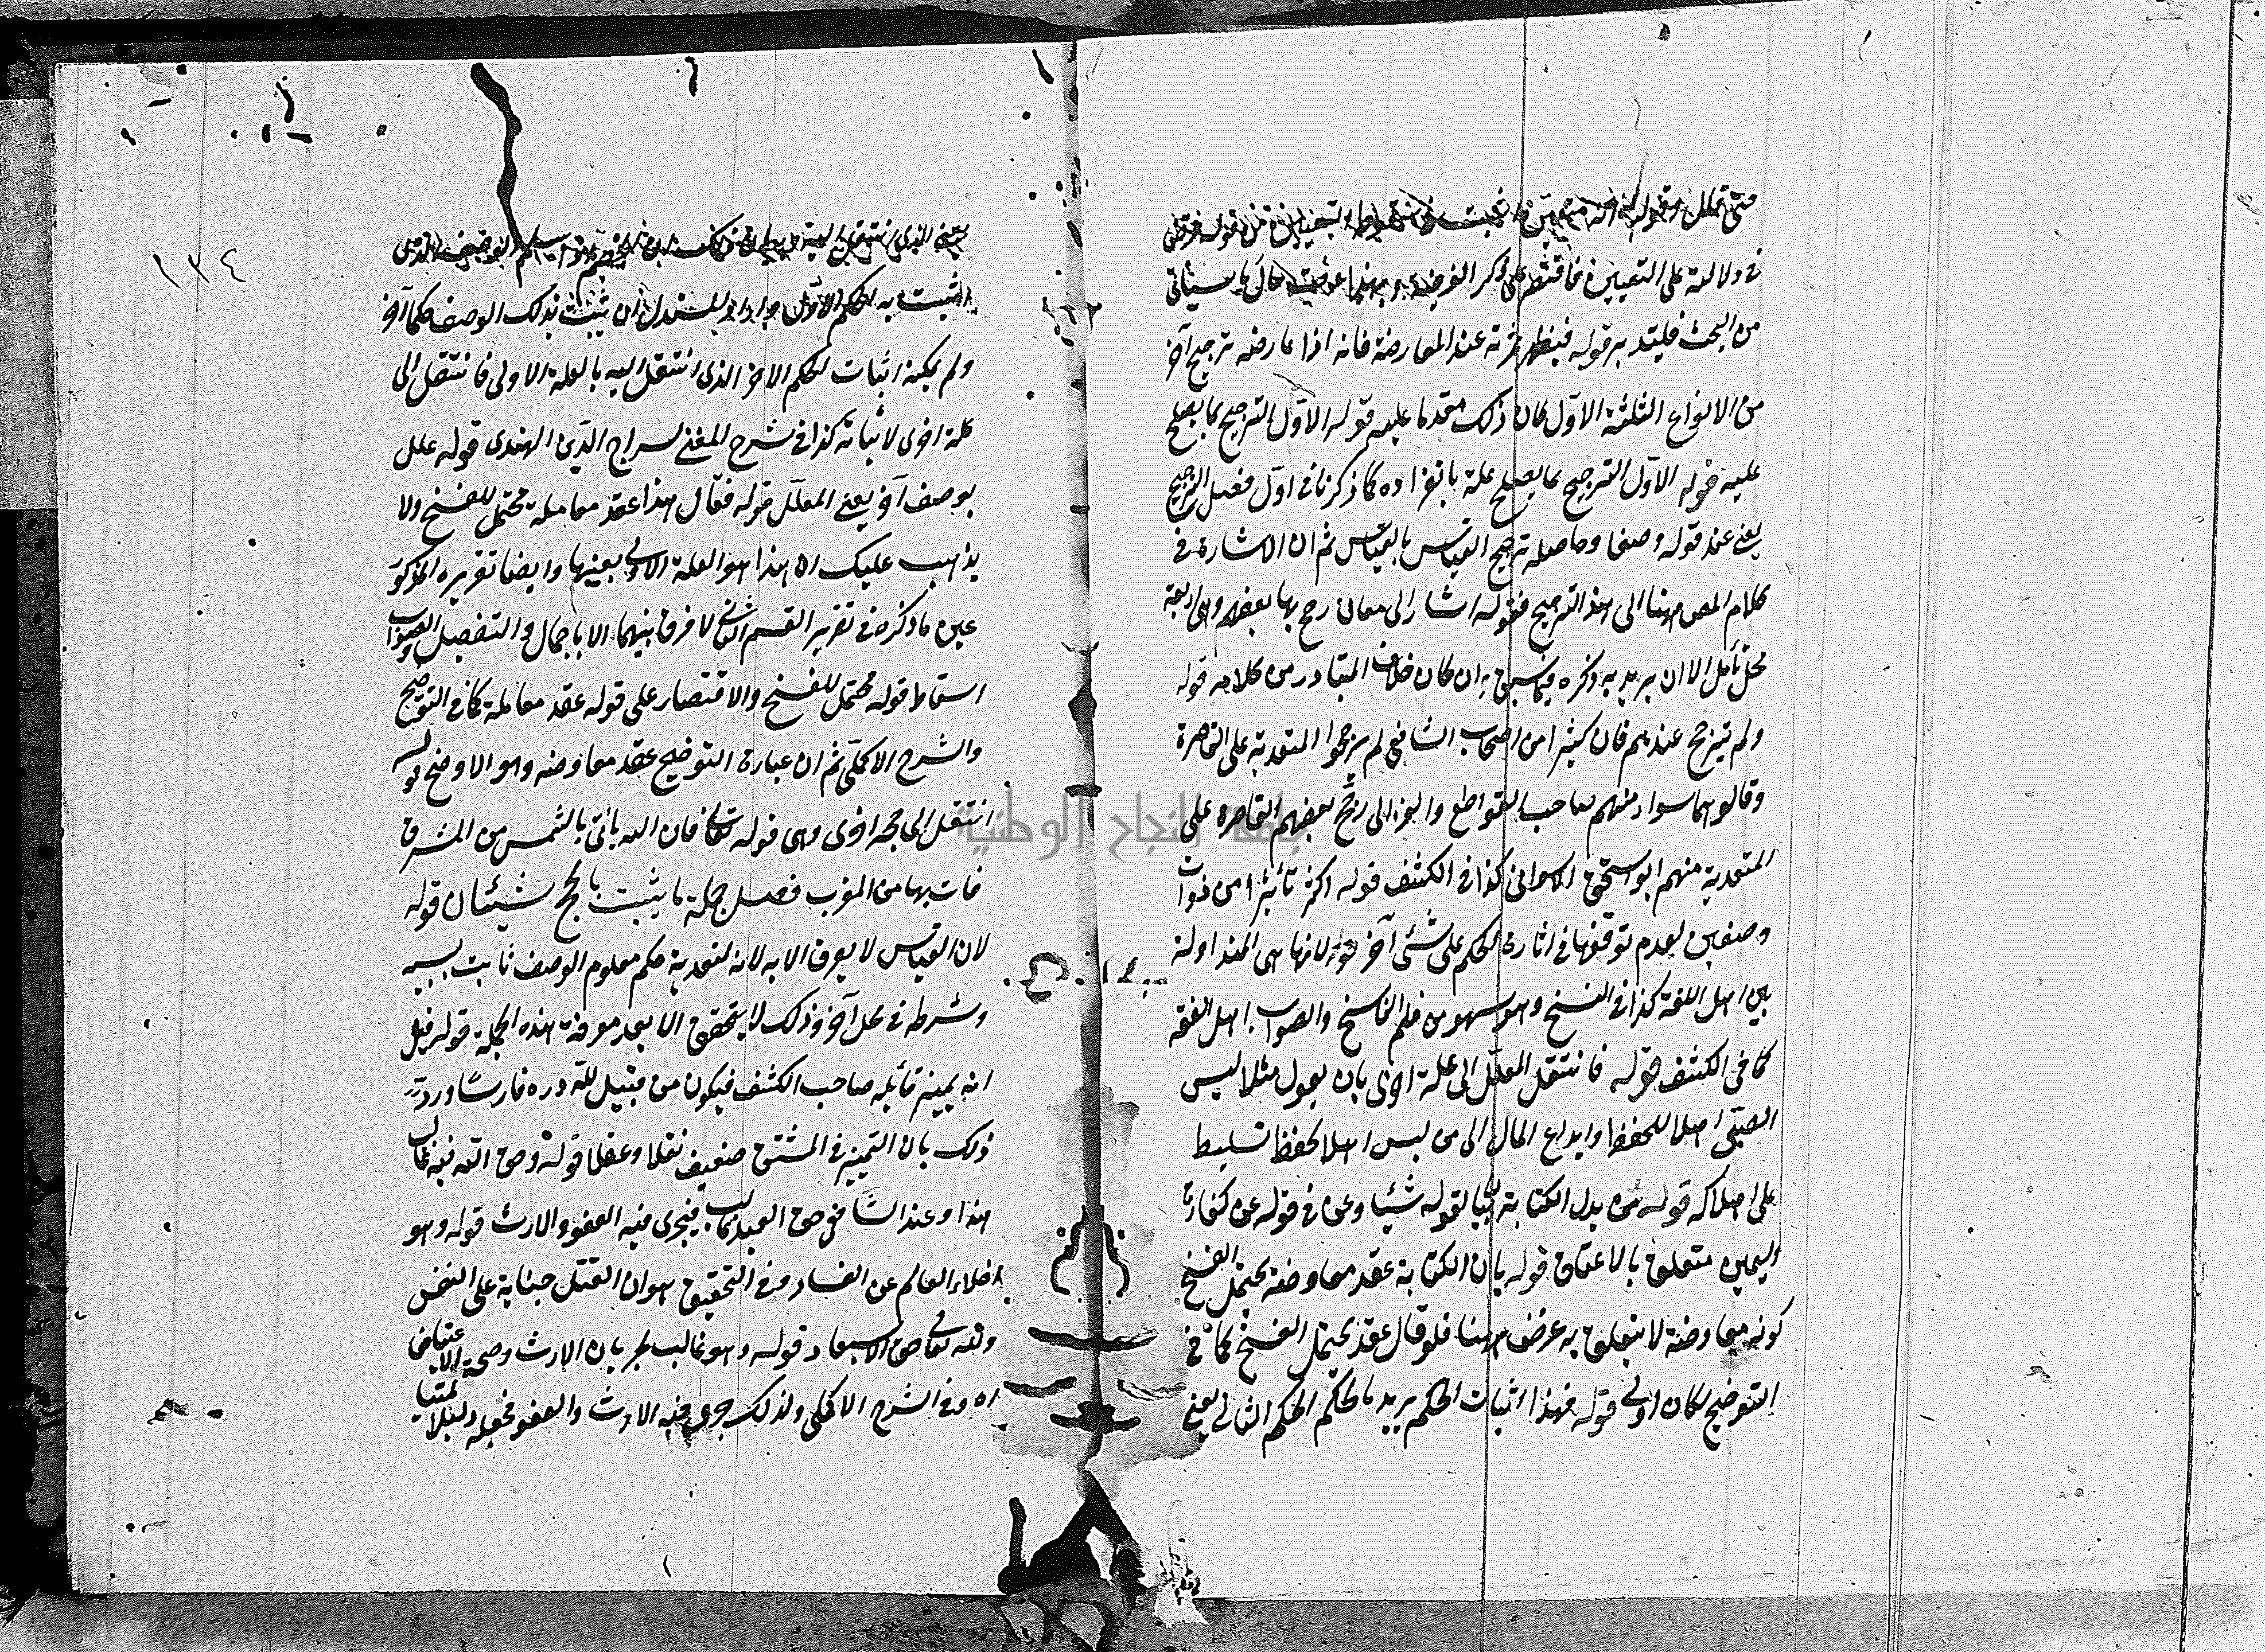 في دلالته على التعيين
من البحث فليتدبر قوله فيظهر ثمرته عند المعارضة فانه اذا عارضه ترجيح آخر
من الانواع الثلثة الاول كان ذلك مقدما عليه قوله الاول الترجيح بما يصلح
عليه قوله الاول الترجيح بما يصلح علة بانفراده كما ذكرنا في اول فصل الترجيح
يعني عند قوله وصفا وحاصله ترجيح القياس بالقياس ثم ان الاشارة في
كلام المص ههنا الى هذا الترجيح فقوله اشار الى معان رجح بها بعضهم وهى اربعة
محل تأمل الا ان يريد به ذكره فيما سبق وان كان خلاف المتبادر من كلامه قوله
ولم يترجح عندهم فان كثيرا من اصحاب الشافعى لم يرجحوا المتعدية على القاصرة
وقالوا هما سواء منهم صاحب القواطع والغزالى رجح بعضهم القاصرة على
المتعدية منهم ابو اسحق الاسفراينى كذا في الكشف قوله اكثر تأثيرا من ذوات
وصفين لعدم توقفها في اثارة الحكم على شئ آخر قوله لانها هى المتداولة
بين اهل اللغة كذا في النسخ وهو سهو من قلم الناسخ والصواب اهل الفقه
كما في الكشف قوله فانتقل المعلل الى علة اخرى بان يقول مثلا ليس
الصبى اهلا للحفظ وايداع المال الى من ليس اهلا للحفظ تسليط
على اهلاكه قوله من بدل الكتابة بيان لقوله شيئا وعن في قوله عن كفارة
اليمين متعلق بالاعتاق قوله بان الكتابة عقد معاوضة يحتمل الفسخ
كونه معاوضة لا يتعلق به غرض ههنا فلو قال عقد يحتمل الفسخ كما في
التوضيح لكان اولى قوله فهذا اثبات الحكم يريد بالحكم الحكم الثانى يعني
١٣٤
اثبت به الحكم الاول واراد المستدل ان يثبت بذلك الوصف حكما آخر
ولم يمكنه اثبات الحكم الاخر الذى انتقل اليه بالعلة الاولى فانتقل الى
علة اخرى لاثباته كذا في شرح المغنى لسراج الدين الهندى قوله علل
بوصف آخر يعني المعلل قوله فقال هذا عقد معاملة محتمل للفسخ ولا
يذهب عليك ان هذا هو العلة الاولى بعينها وايضا تقريره المذكور
عين ما ذكره في تقرير القسم الثانى لا فرق بينهما الا باجمال والتفصيل والصواب
اسقاط قوله محتمل للفسخ والاقتصار على قوله عقد معاملة كما في التوضيح
والشرح الاكملى ثم ان عبارة التوضيح عقد معاوضة وهو الاوضح قوله
انتقل الى حجة اخرى وهى قوله تعالى فان الله يأتى بالشمس من المشرق
فات بها من المغرب فصل جملة ما يثبت بالحجج شيئان قوله
لان القياس لا يعرف الا به لانه لتعدية حكم معلوم الوصف ثابت بسببه
وشرطه في محل آخر وذلك لا يتحقق الا بعد معرفة هذه الجملة قوله قيل
انه تمييز قائله صاحب الكشف فيكون من قبيل لله دره فارسا وردّ
ذلك بان التمييز في المشتق ضعيف نقلا وعقلا قوله وحق الله فيه غالب
هذا وعند الشافعى حق العبد غالب فيجرى فيه العفو والارث قوله وهو
اخلاء العالم عن الفساد وفي التحقيق هو ان القتل جناية على النفس
ولله تعالى حق الاستعباد قوله وهو غالب لجريان الارث وصحة الاعتياض
اه وفي الشرح الاكملى ولذلك جرى فيه الارث والعفو